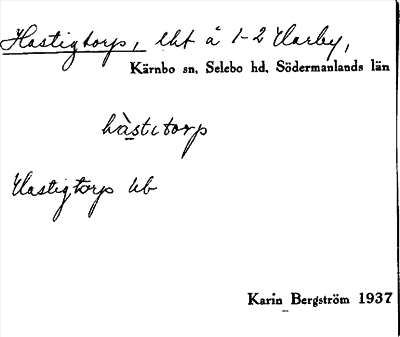 Hastigtorp, lht å 1-2 Harby,
Kärnbo sn, Selebo hd, Södermanlands län
hàstitorp
Hastigtorp Ub
Karin Bergström 1937